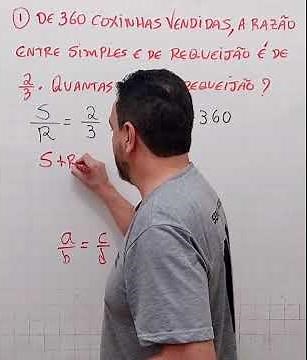 ① DE 360 COXINHAS VENDIDAS, A RAZÃO
ENTRE SIMPLES E DE REQUEIJÃO É DE
2/3. QUANTAS REQUEIJÃO?
S/R = 2/3 360
S+R
a/b = c/d